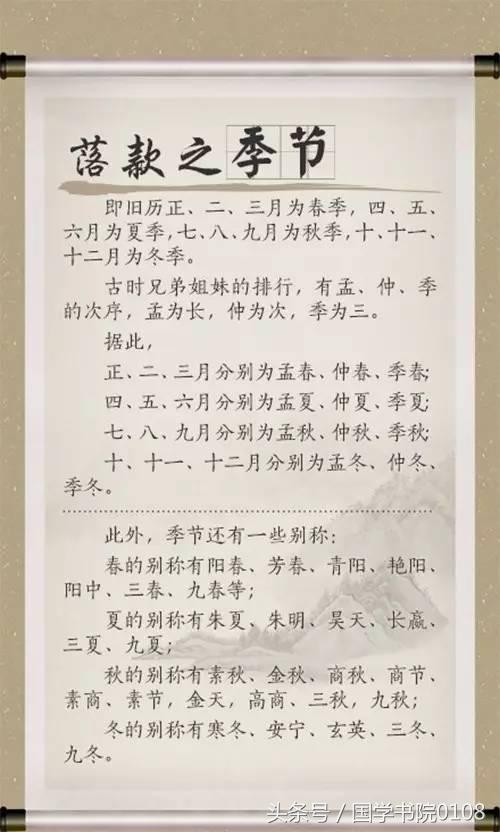 落款之季节
即旧历正、二、三月为春季，四、五、
六月为夏季，七、八、九月为秋季，十、十一、
十二月为冬季。
古时兄弟姐妹的排行，有孟、仲、季
的次序，孟为长，仲为次，季为三。
据此，
正、二、三月分别为孟春、仲春、季春；
四、五、六月分别为孟夏、仲夏、季夏；
七、八、九月分别为孟秋、仲秋、季秋；
十、十一、十二月分别为孟冬、仲冬、
季冬。
此外，季节还有一些别称：
春的别称有阳春、芳春、青阳、艳阳、
阳中、三春、九春等；
夏的别称有朱夏、朱明、昊天、长嬴、
三夏、九夏；
秋的别称有素秋、金秋、商秋、商节、
素商、素节，金天，高商、三秋，九秋；
冬的别称有寒冬、安宁、玄英、三冬、
九冬。
头条号 / 国学书院0108